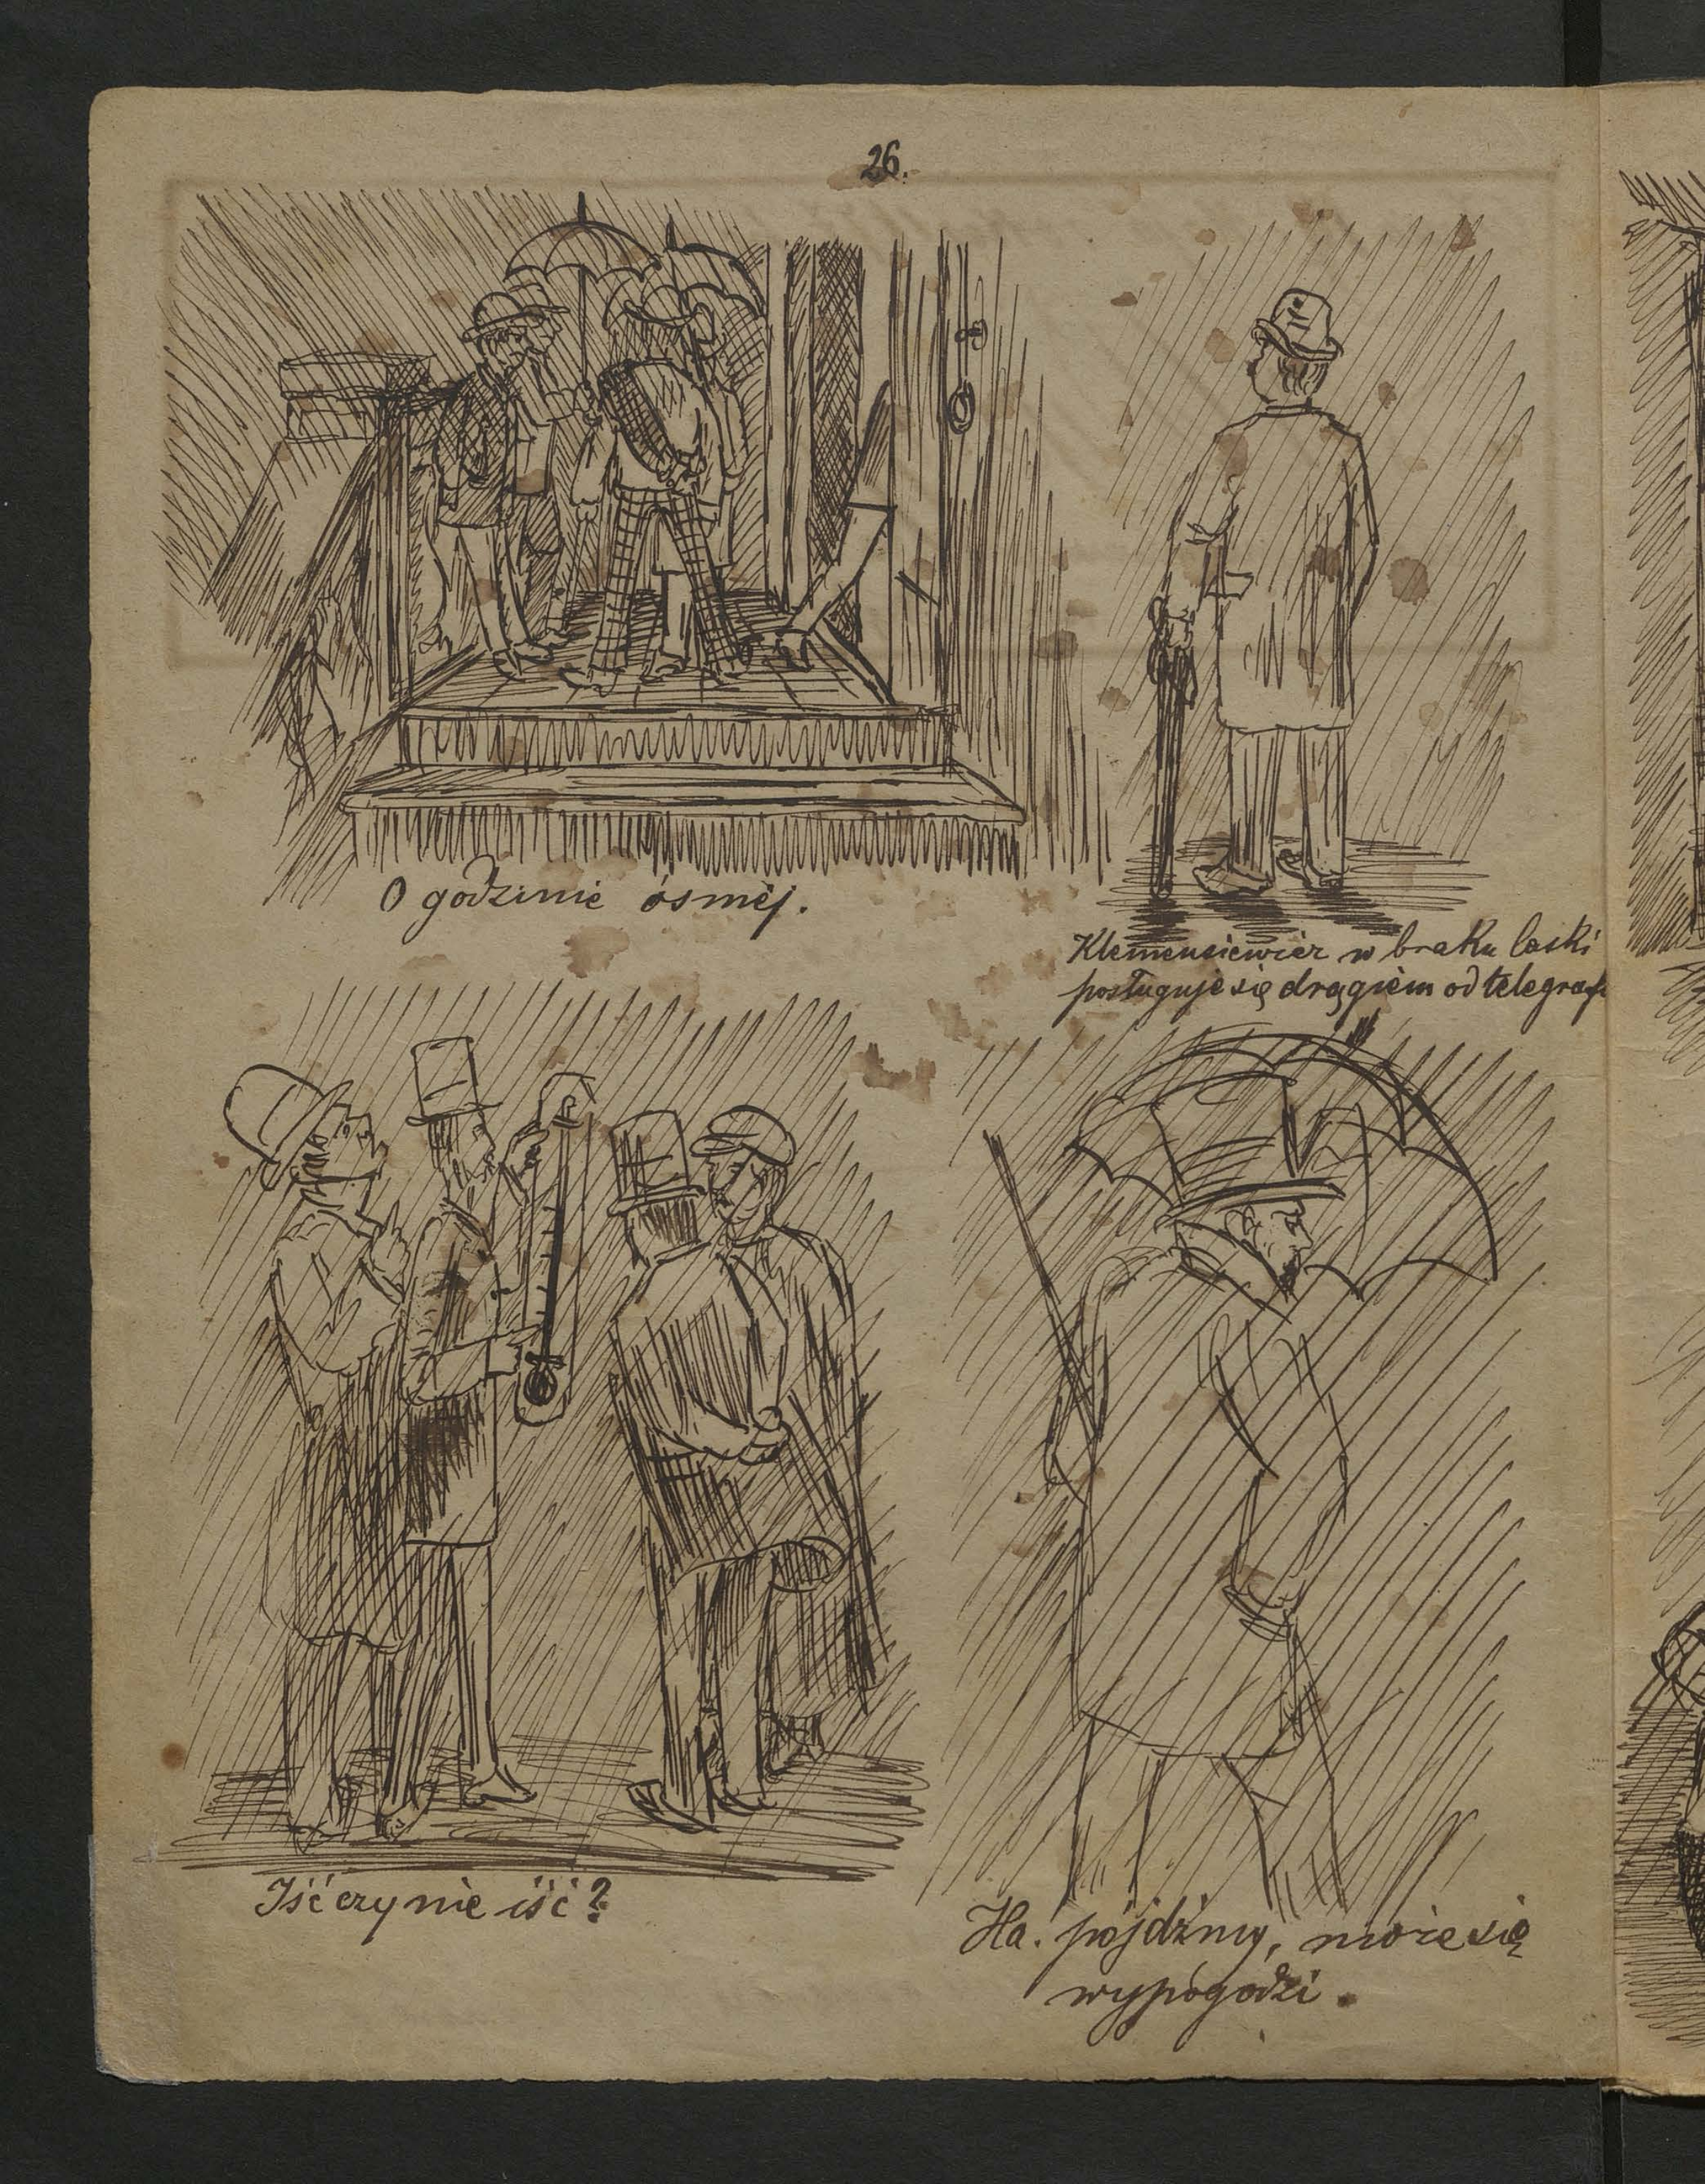 26.
O godzinie ósmej.
Klemensiewicz w braku laski
posługuje się drągiem od telegrafu
Iść czy nie iść?
Ha. pójdźmy, może się
wypogodzi.